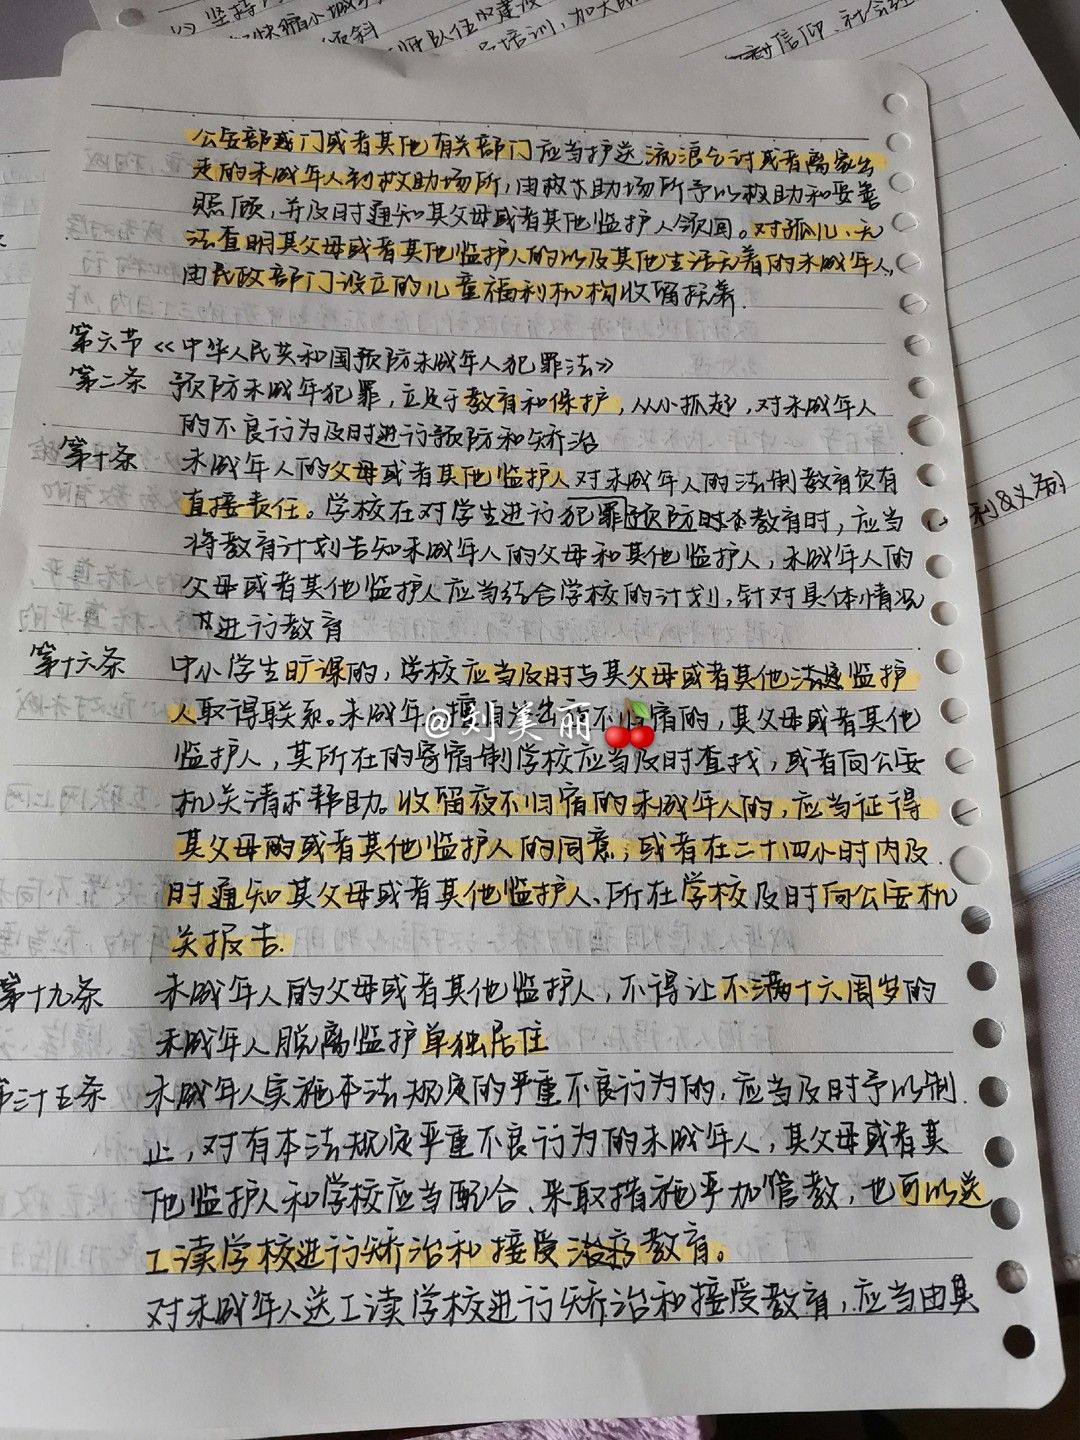 师队伍的建设
信仰、社会经
公安部或门或者其他有关部门应当护送流浪乞讨或者离家出
走的未成年人到救助场所,由救求助场所予以救助和妥善
照顾,并及时通知其父母或者其他监护人领回。对孤儿、无
法查明其父母或者其他监护人的以及其他生活无着的未成年人,
由民政部门设立的儿童福利机构收留抚养.
第六节《中华人民共和国预防未成年人犯罪法》
第二条 预防未成年犯罪,立足于教育和保护,从小抓起,对未成年人
的不良行为及时进行预防和矫治
第十条 未成年人的父母或者其他监护人对未成年人的法制教育负有
直接责任。学校在对学生进行犯罪预防时教育时,应当
将教育计划告知未成年人的父母和其他监护人,未成年人的
父母或者其他监护人应当结合学校的计划,针对具体情况
进行教育
第十六条 中小学生旷课的,学校应当及时与其父母或者其他法监护
人取得联系。未成年人擅自外出夜不归宿的,其父母或者其他
监护人,其所在的寄宿制学校应当及时查找,或者向公安
机关请求帮助。收留夜不归宿的未成年人的,应当征得
其父母的或者其他监护人的同意,或者在二十四小时内及
时通知其父母或者其他监护人、所在学校及时向公安机
关报告.
@刘美丽🍒
第十九条 未成年人的父母或者其他监护人,不得让不满十六周岁的
未成年人脱离监护单独居住
第三十五条 未成年人实施本法规定的严重不良行为的,应当及时予以制
止,对有本法规定严重不良行为的未成年人,其父母或者其
他监护人和学校应当配合、采取措施平加管教,也可以送
工读学校进行矫治和接受治疗教育。
对未成年人送工读学校进行矫治和接受教育,应当由其